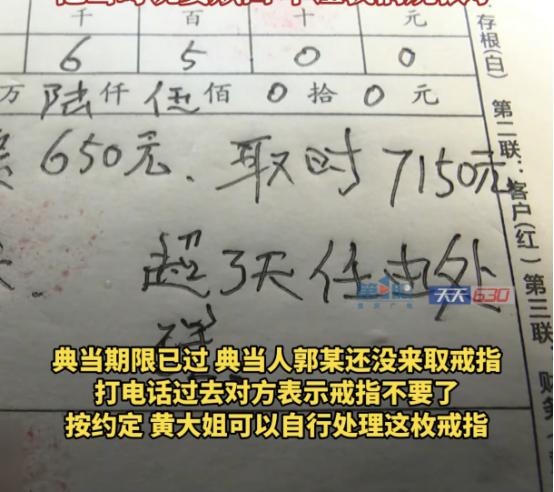 千 百 十 元
6 5 0 0
万 陆 仟 伍 佰 0 拾 0 元
650元、取时7150元
超3天任由处
典当期限已过 典当人郭某还没来取戒指
打电话过去对方表示戒指不要了
按约定 黄大姐可以自行处理这枚戒指
存根(白)
第二联：客户(红)
第三联：财务
第1眼
天天630